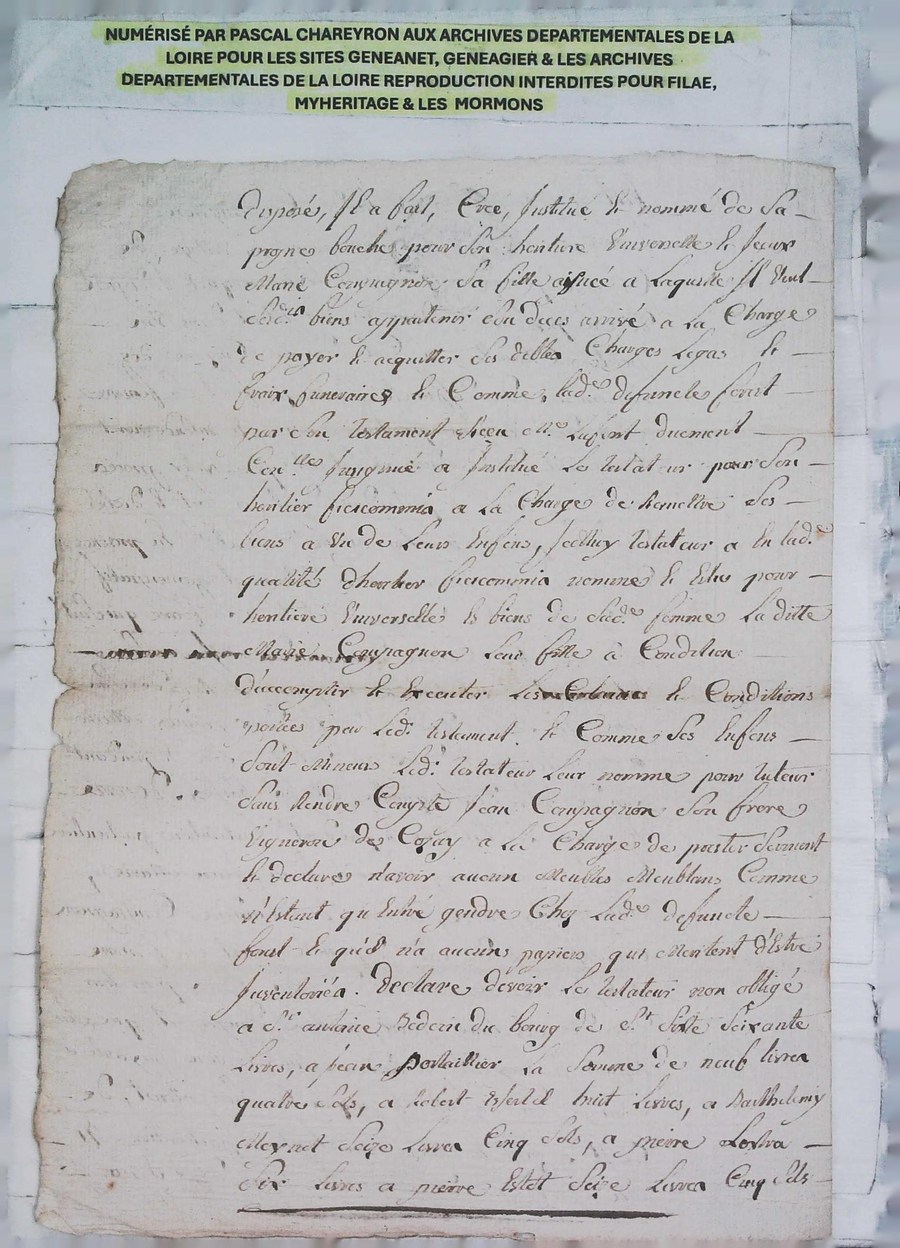 NUMÉRISÉ PAR PASCAL CHAREYRON AUX ARCHIVES DEPARTEMENTALES DE LA
LOIRE POUR LES SITES GENEANET, GENEAGIER & LES ARCHIVES
DEPARTEMENTALES DE LA LOIRE REPRODUCTION INTERDITES POUR FILAE,
MYHERITAGE & LES MORMONS
disposé, Il a fait, Créé, Institué & nommé de Sa
propre bouche pour Son heritiere Universelle &
Marie Compagnon Sa fille aisnée a Laquelle Il Veut
biens appartenir Son deces arrivé a La Charge
de payer & acquitter Ses debtes Charges Legas &
fraix funeraires & Comme lade. defuncte forest
par Son testament Me. duement
a Institué Le testateur pour Son
heritier fideicommis a La Charge de Remettre Ses
biens a Un de Leurs Enfens, Icelluy testateur a En lade.
qualité dheritier fideicommis nomme & Elu pour
heritiere Universelle Es biens de Sade. femme La ditte
Marie Compagnon Leur fille à Condition
daccomplir & Executer Les & Conditions
portées par Led. testament. & Comme Ses Enfens
Sont Mineurs Led. testateur Leur nomme pour tuteur
Sans Rendre Compte Jean Compagnon Son frere
Vigneron de a La Charge de prester Serment
& declare n'avoir aucun Meubles Meublans Comme
n'Estant qu'Entré gendre Chez Lade. defuncte
forest & qu'il n'a aucuns papiers qui Meritent d'Estre
Inventoriés. Declare devoir Le testateur non obligé
a Sr. antoine du bourg de St. Soixante
Livres, a Jean La Somme de neuf livres
quatre Sols, a Robert huit Livres, a Barthelemy
Meynet Seize Livres Cinq Sols, a pierre
Six Livres a pierre Seize Livres Cinq Sols